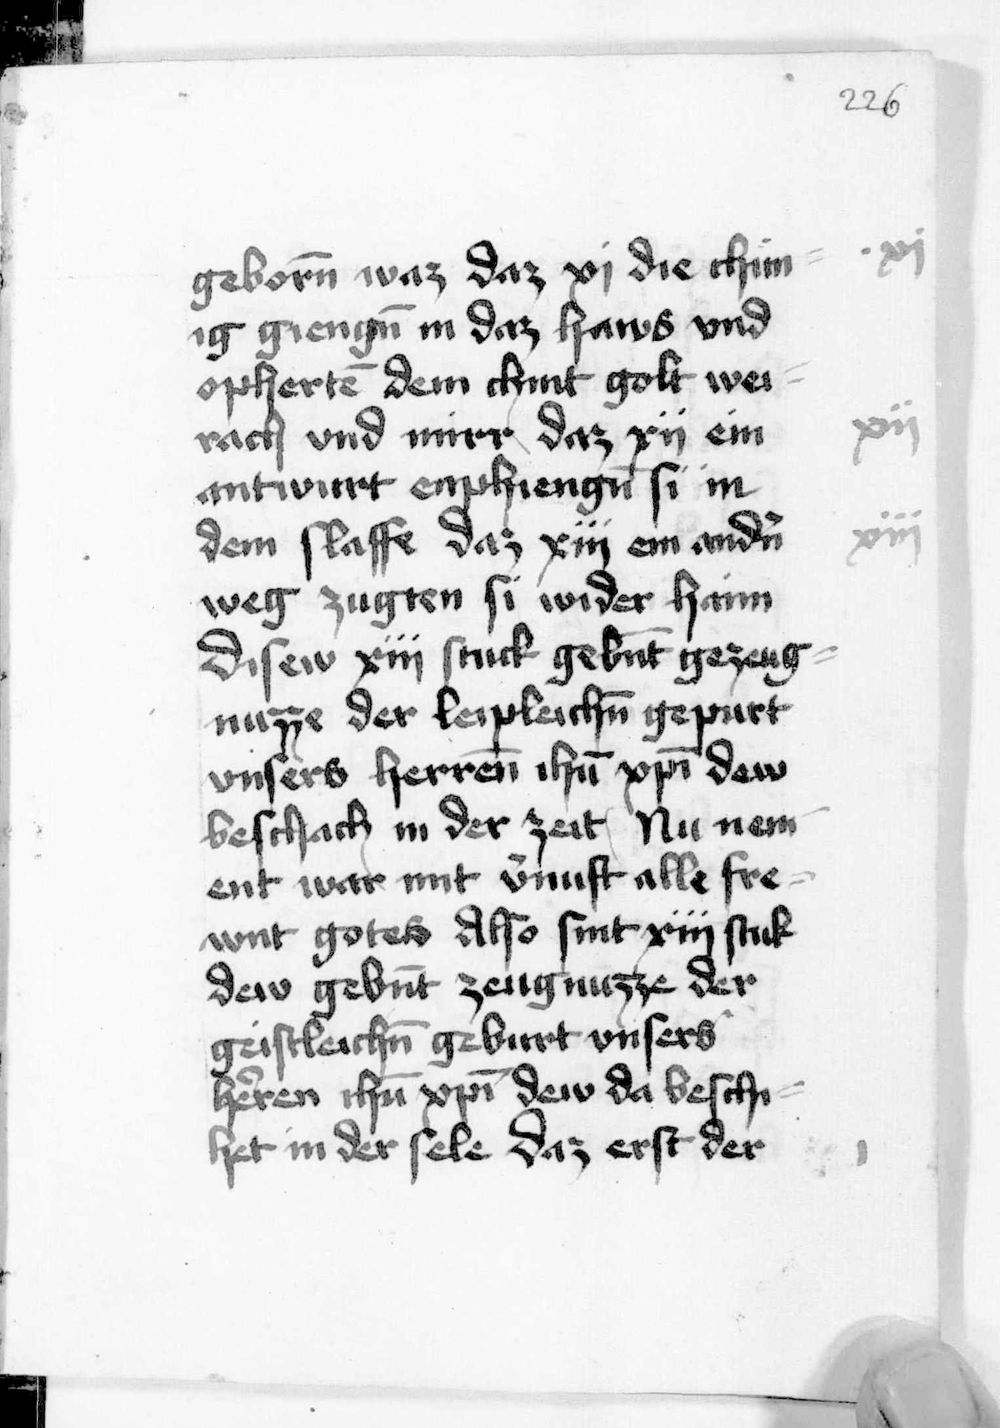 226
geborn̄ waz daz xi die chün= · xi
ig giengn̄ in daz haws vnd
ophertē dem chint golt wei=
rach vnd mirr daz xii ein xii
antwurt enphiengn̄ si in
dem slaffe daz xiii ein andn̄ xiii
weg zugten si wider haim
Disew xiii stuck gebnt̄ gezeug=
nuzze der leipleichn̄ gepurt
vnsers herren̄ ihū xp̄i dew
beschach in der zeit Nu nem
ent war mit v̄nuft alle fre=
wnt gotes Also sint xiii stuk
dew gebnt̄ zeugnuzze der
geistleichn̄ geburt vnsers
hēren ihū xp̄i dew da beschi=
het in der sele Daz erst der i